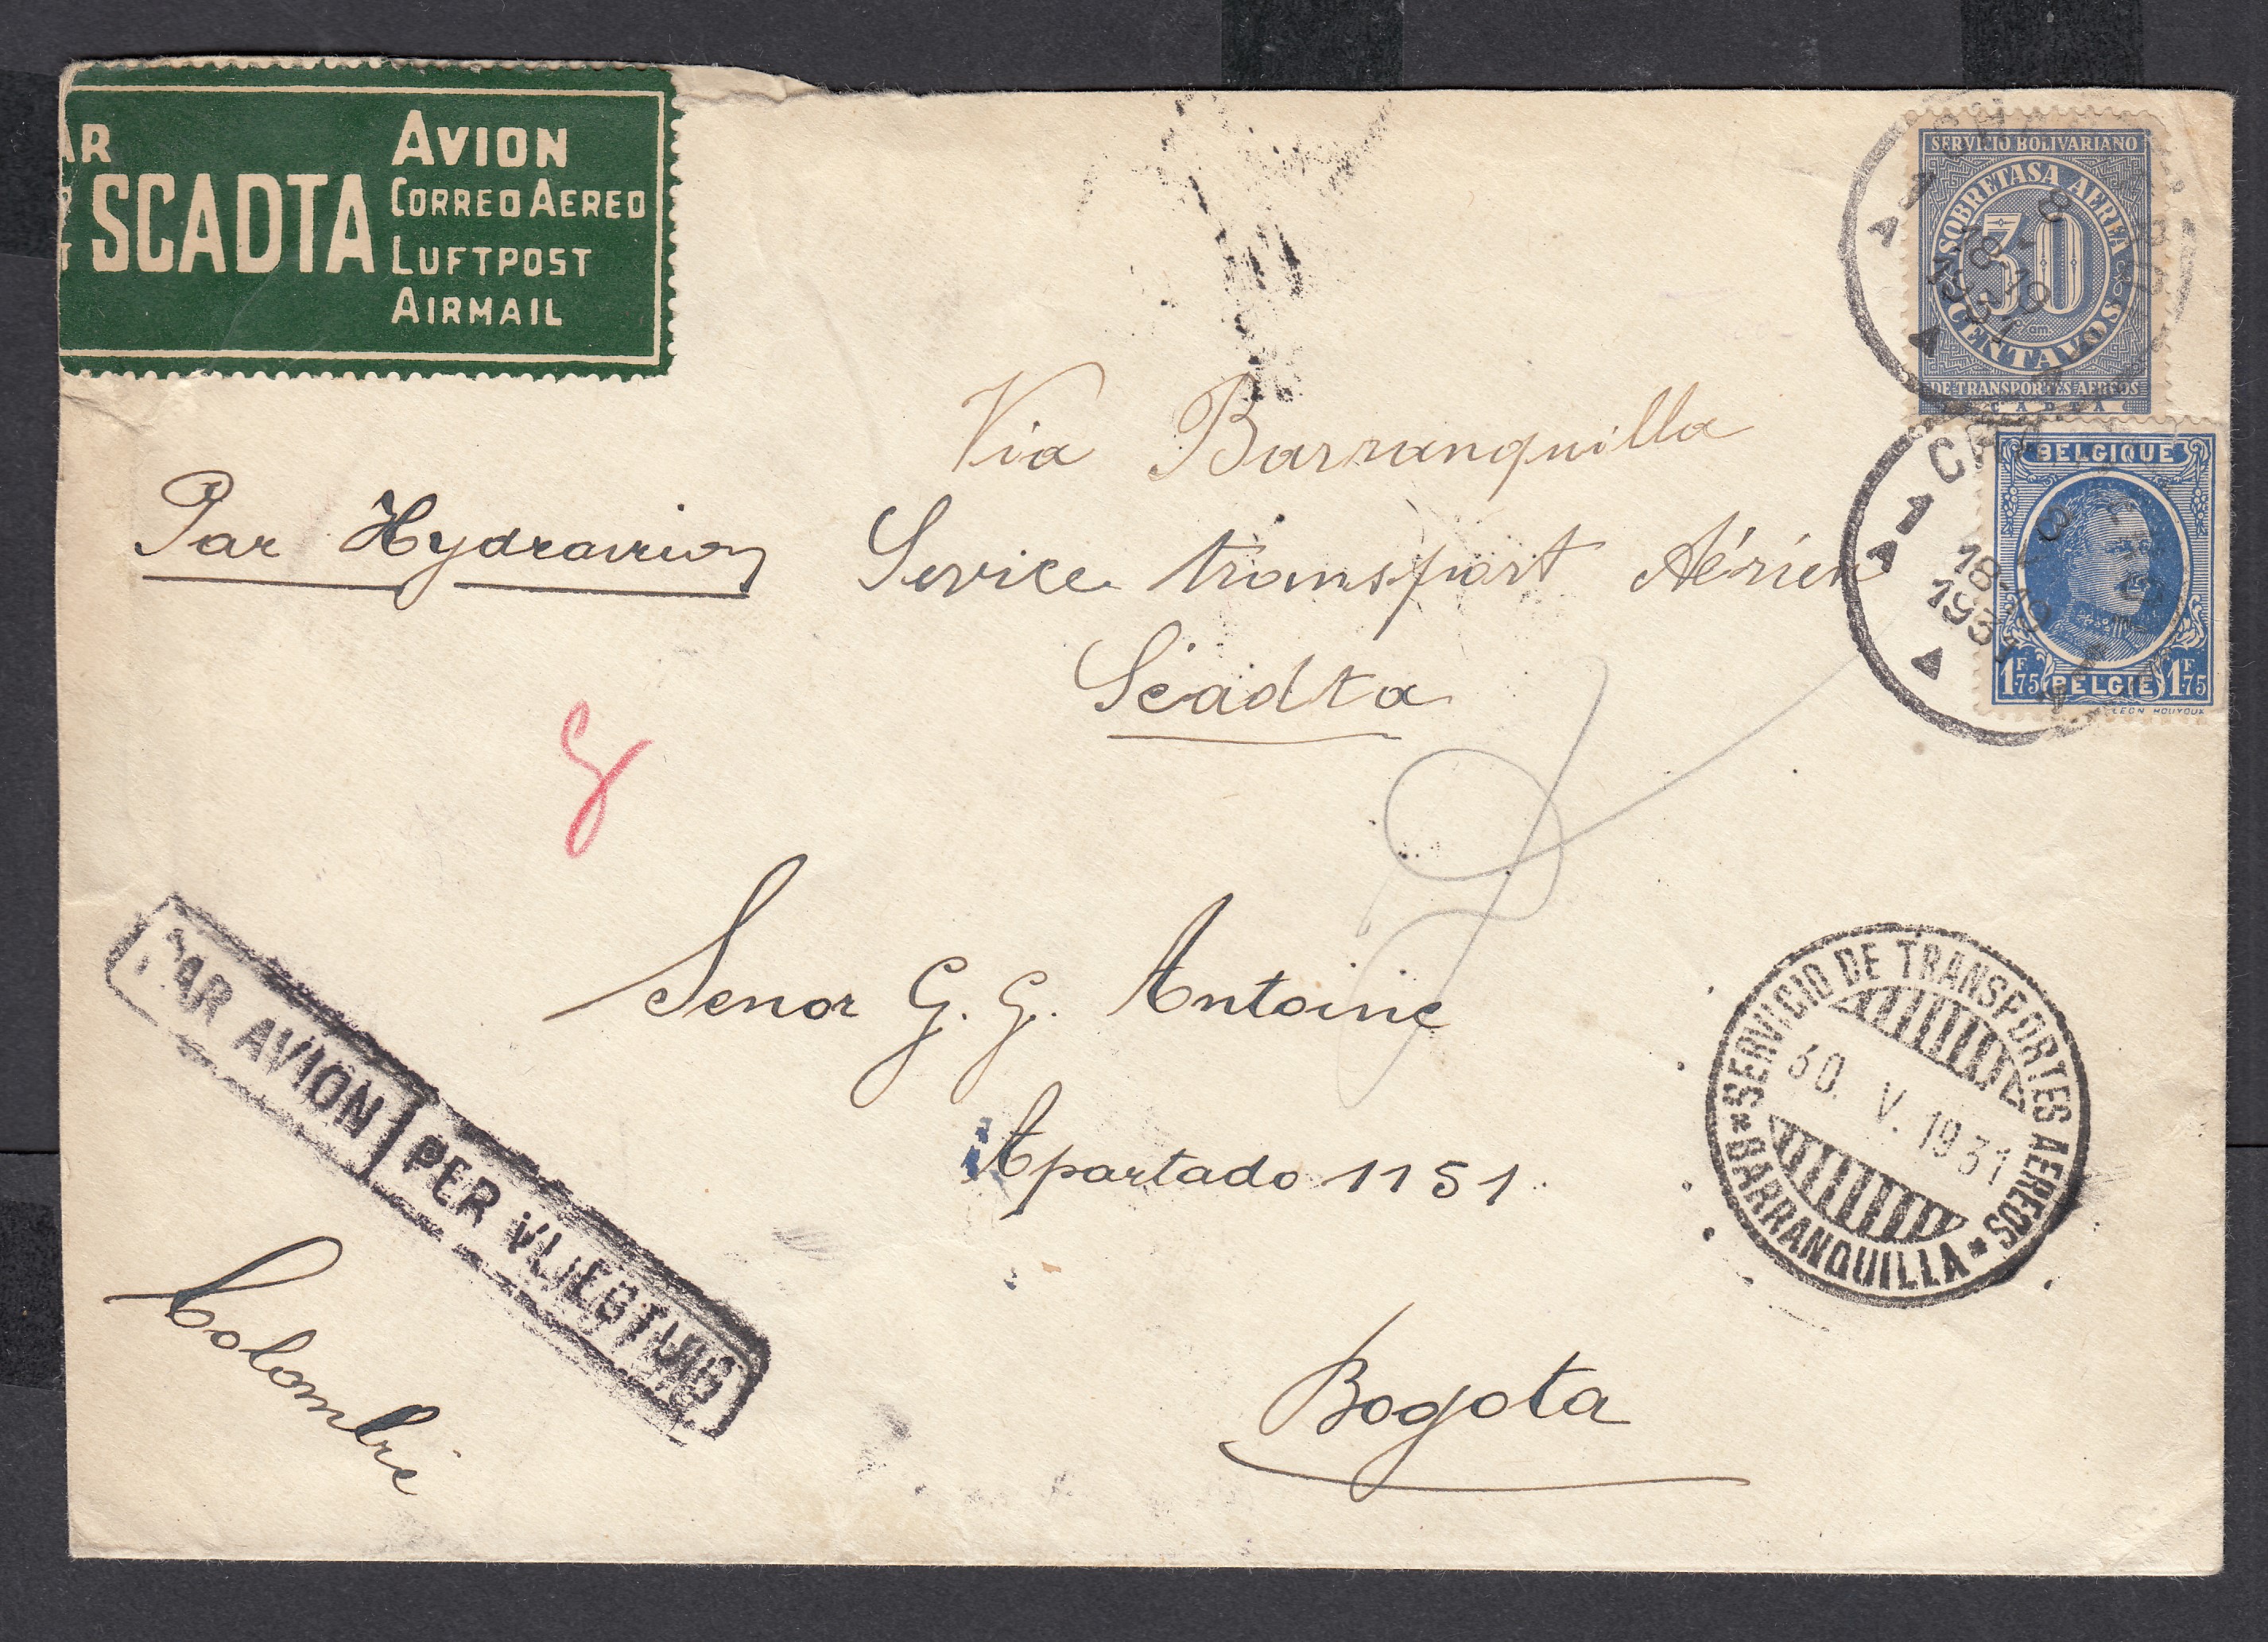 AR
SCADTA
AVION
CORREO AEREO
LUFTPOST
AIRMAIL
SERVICIO BOLIVARIANO
SOBRETASA AEREA
30
CENTAVOS
DE TRANSPORTES AEREOS
BELGIQUE
1F75 BELGIE 1F75
LEON HOUYOUX
1
18
Via Barranquilla
Par Hydravion
Service transport Aérien
Scadta
Senor G. G. Antoine
Apartado 1151
Bogota
Colombie
PAR AVION PER VLIEGTUIG
SERVICIO DE TRANSPORTES AEREOS
30. V. 1931
BARRANQUILLA